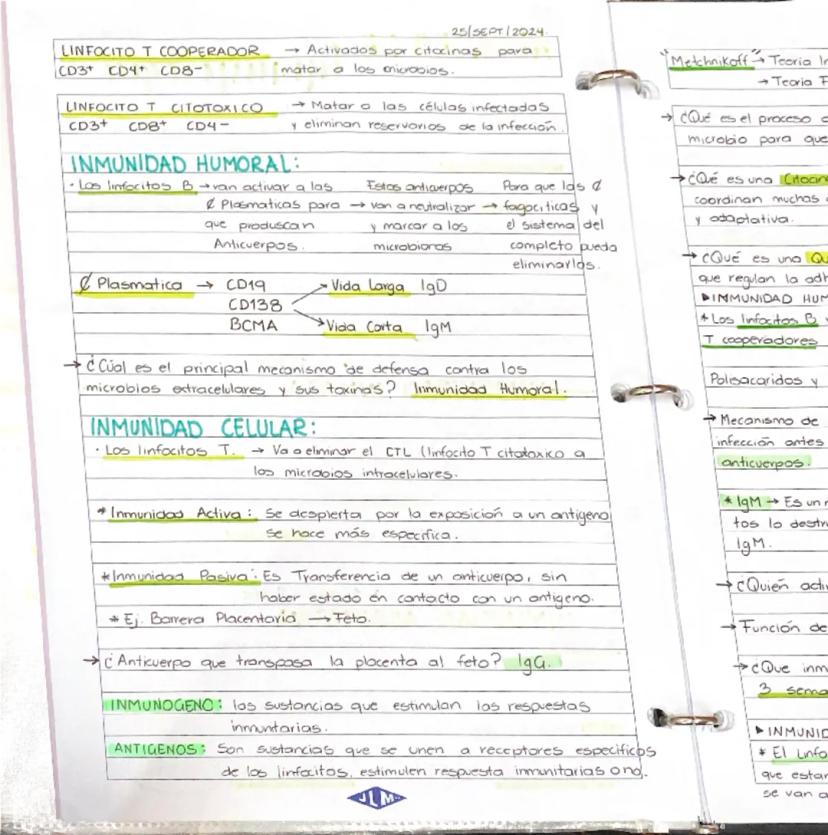 25/SEPT/2024
LINFOCITO T COOPERADOR → Activados por citocinas para
CD3+ CD4+ CD8- matar a los microbios.
LINFOCITO T CITOTOXICO → Matar a las células infectadas
CD3+ CD8+ CD4- y eliminan reservorios de la infección.
INMUNIDAD HUMORAL:
· Los linfocitos B → van activar a las Estos anticuerpos Para que las ₡
₡ Plasmaticas para → van a neutralizar → fagocíticas y
que produscan y marcar a los el sistema del
Anticuerpos. microbianos completo pueda
eliminarlos.
₡ Plasmatica → CD19 Vida Larga IgD
CD138
BCMA Vida Corta IgM
→ ¿Cúal es el principal mecanismo de defensa contra los
microbios extracelulares y sus toxinas? Inmunidad Humoral.
INMUNIDAD CELULAR:
· Los linfocitos T. → Va a eliminar el CTL (linfocito T citotoxico a
los microbios intracelulares.
* Inmunidad Activa: Se despierta por la exposición a un antigeno
se hace más especifica.
* Inmunidad Pasiva: Es Transferencia de un anticuerpo, sin
haber estado en contacto con un antigeno.
* Ej. Barrera Placentaria → Feto.
→ ¿Anticuerpo que transpasa la placenta al feto? IgG.
INMUNOGENO: las sustancias que estimulan las respuestas
inmuntarias.
ANTIGENOS: Son sustancias que se unen a receptores especificos
de los linfocitos, estimulen respuesta inmunitarias o no.
JLM
"Metchnikoff" → Teoria
→ Teoria
→ ¿Qué es el proceso
microbio para que
→ ¿Qué es una
coordinan muchas
y adaptativa.
→ ¿Qué es una
que regulan la
▶ INMUNIDAD
* Los linfocitos B
T cooperadores
Polisacaridos y
→ Mecanismo de
infección antes
anticuerpos.
* IgM → Es un
tos lo
IgM.
→ ¿Quién
→ Función de
→ ¿Que
3
▶
* El
que
se van a